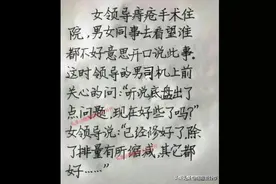 女领导痔疮手术住
院，男女同事去看望谁
都不好意思开口说此事.
这时领导的男司机上前
关心的问:“听说底盘出了
点问题，现在好些了吗?”
女领导说:“已经修好了,除
了排量有所缩减,其它都
好……”